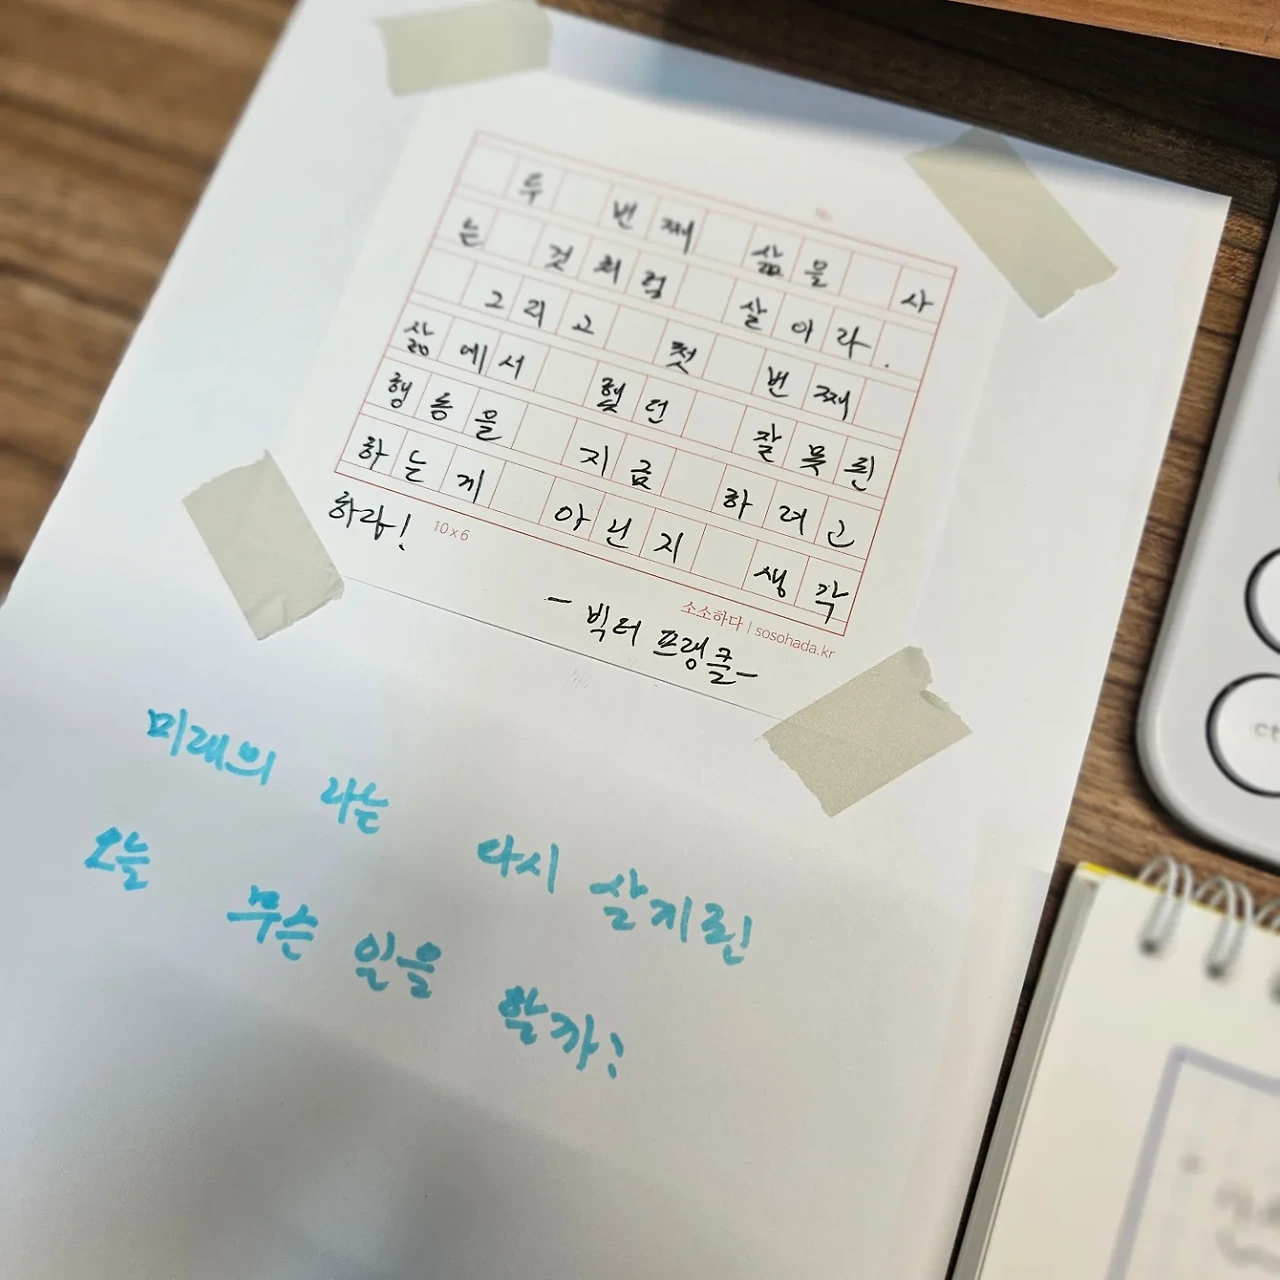 두 번째 삶을 사
는 것처럼 살아라.
그리고 첫 번째
삶에서 했던 잘못된
행동을 지금 하려고
하는게 아닌지 생각
하라!
10x6
소소하다 | sosohada.kr
- 빅터 프랭클 -
미래의 나는 다시 살지린
오늘 무슨 일을 할까?